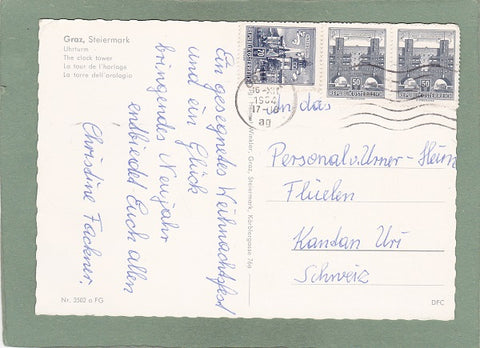 Graz, Steiermark
Uhrturm
The clock tower
La tour de l'horloge
La torre dell'orologio
Ein gesegnetes Weihnachtsfest
und ein Glück
bringendes Neujahr
entbietet Euch allen
Christine
Nr. 3502 a FG
Graz, Steiermark, Körblergasse 76a
16.-XII.
1964
17-
ag
REPUBLIK ÖSTERREICH
50
REPUBLIK ÖSTERREICH
50
An das
Personal v. Urner-Heim
Flüelen
Kanton Uri
Schweiz
DFC